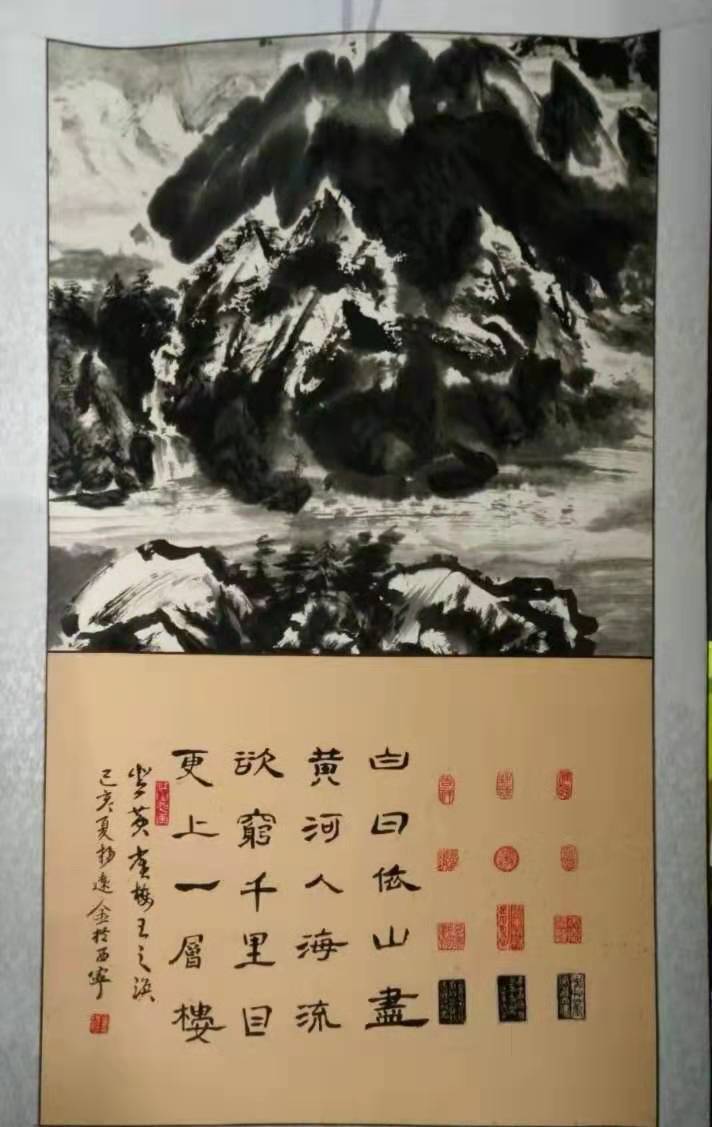 白日依山盡
黄河入海流
欲窮千里目
更上一層樓
登黄雀楼王之涣
己亥夏杨遠金於西寧